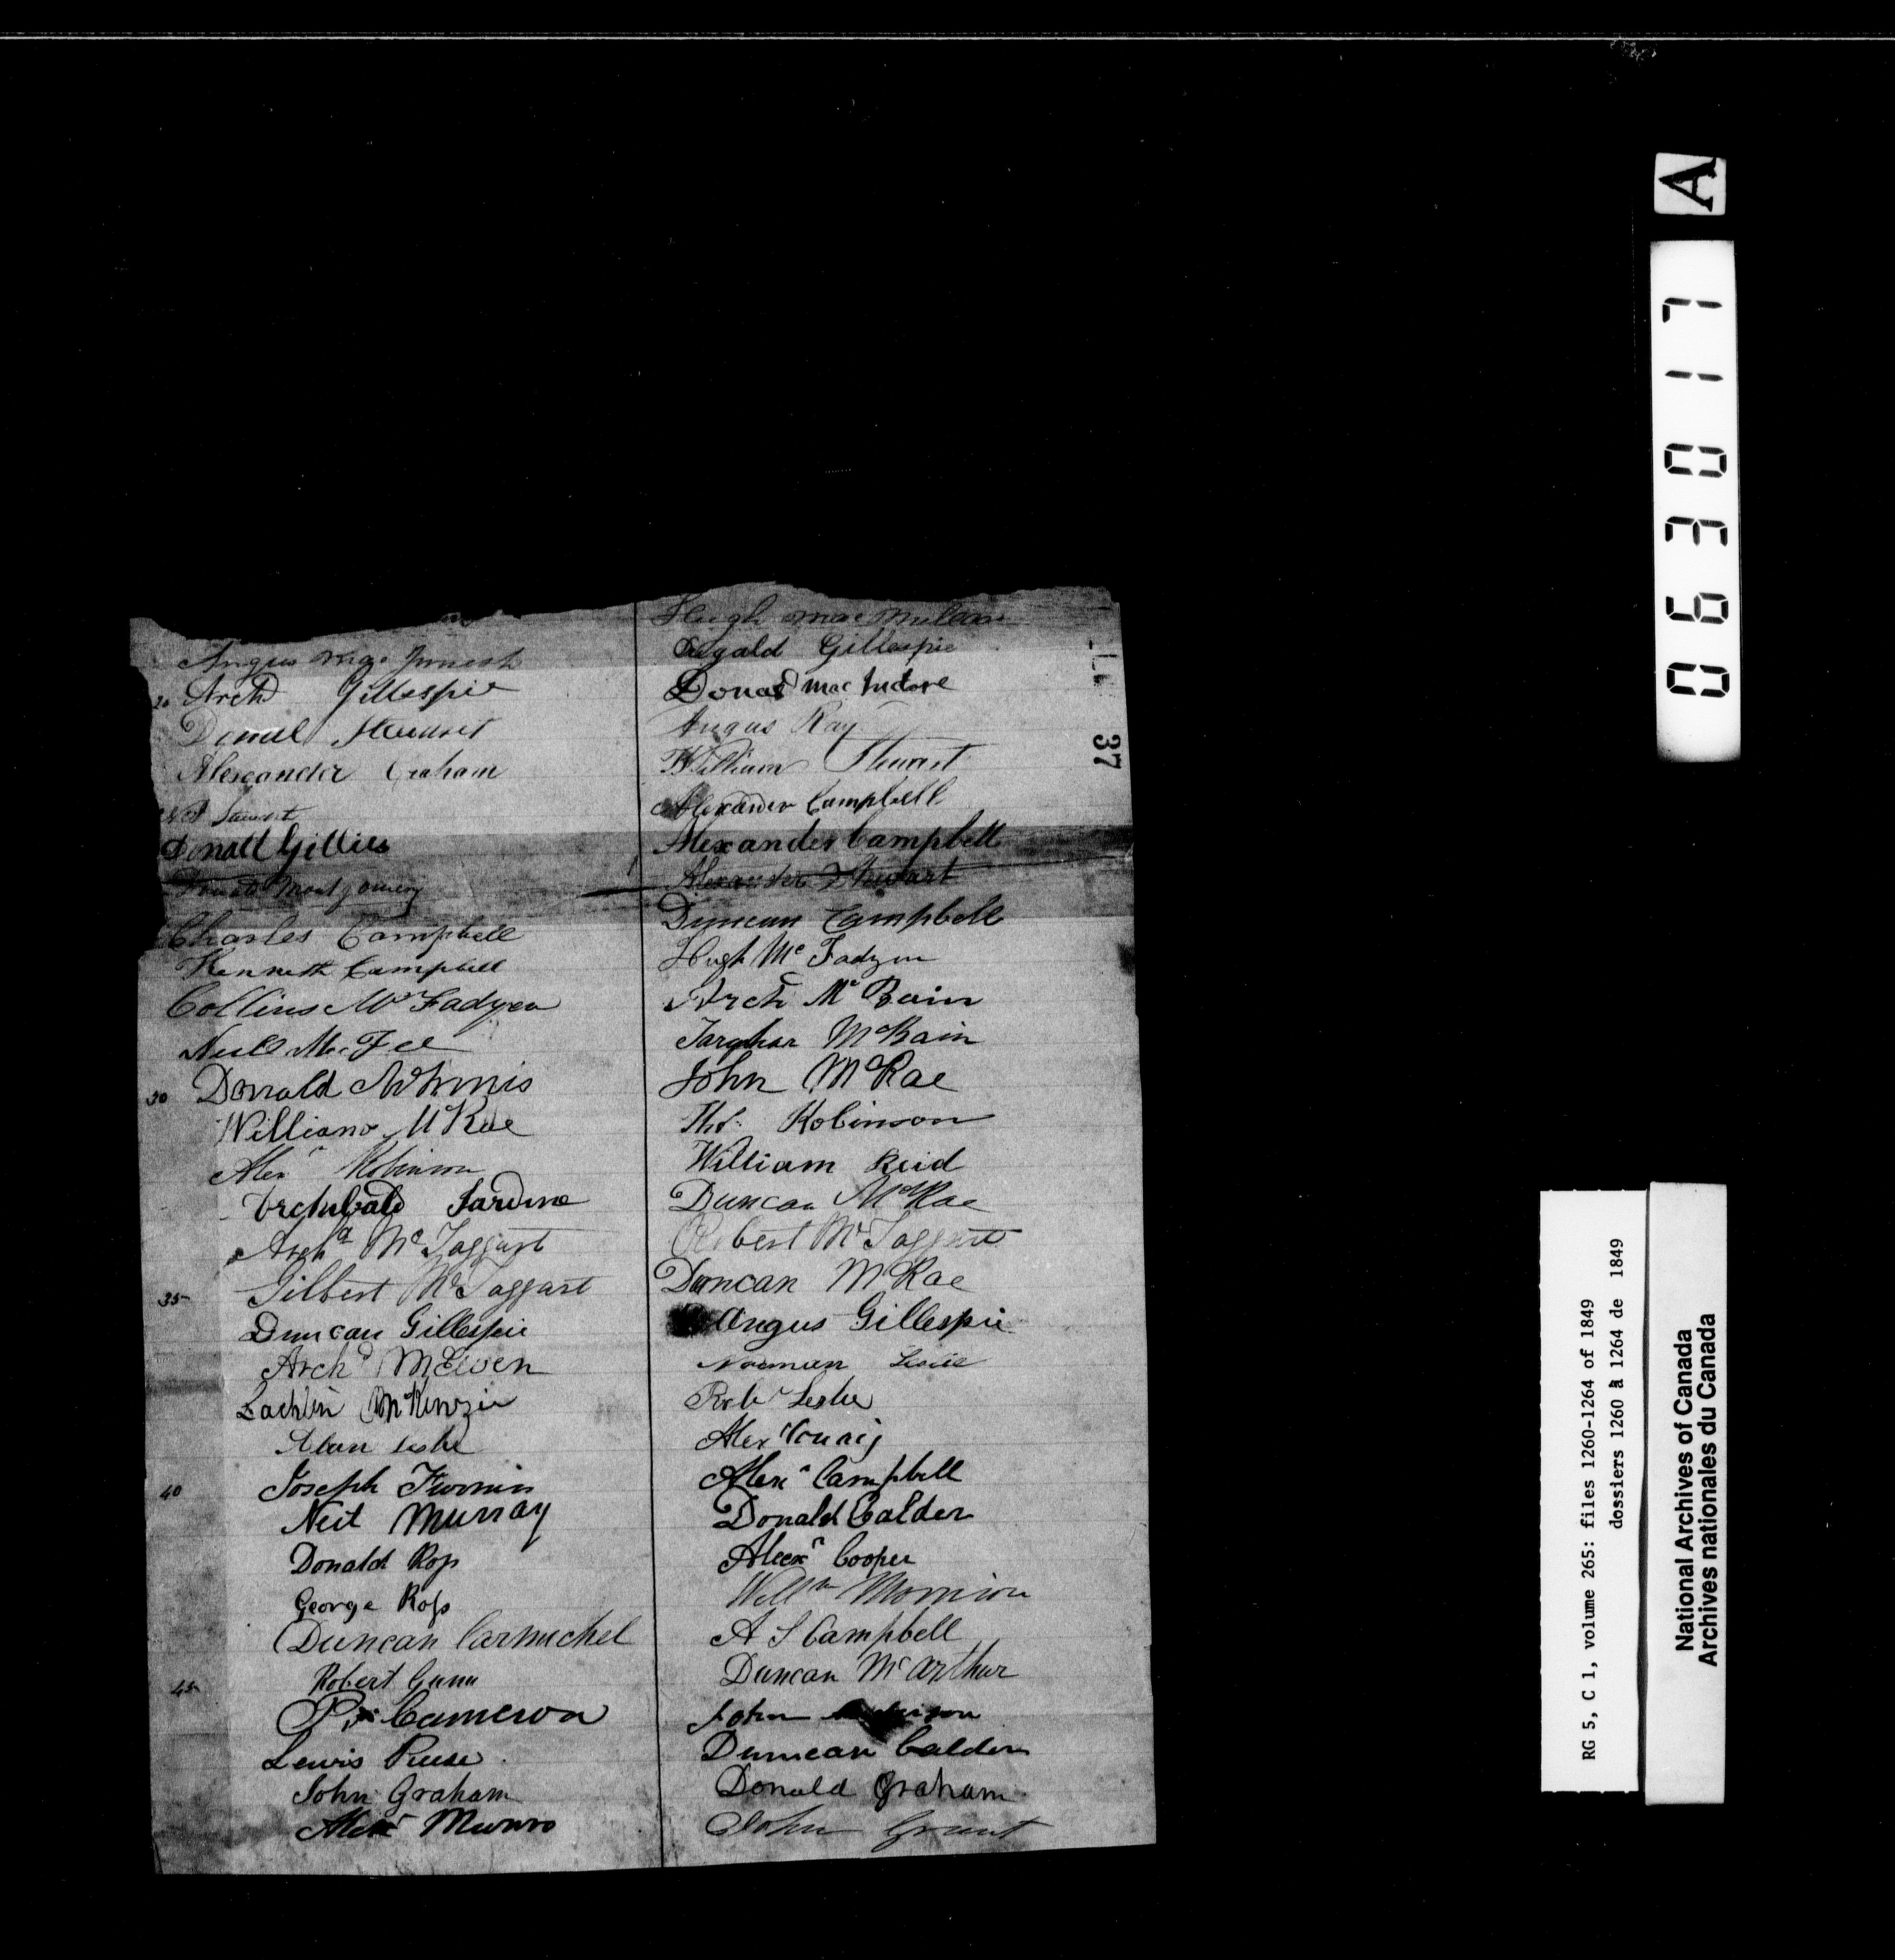 Angus
20 Archd Gillespie
Daniel Stewart
Alexander Graham
Stewart
Donald Gillies
Donald Montgomery
Charles Campbell
Kenneth Campbell
Collins McFadyen
Neill McFee
30 Donald McInnis
William McRae
Alexr Robinson
Archibald Jardine
Archd McTaggart
35 Gilbert McTaggart
Duncan Gillespie
Archd McEwen
Lachlin McKenzie
Alan Leslie
40 Joseph
Neil Murray
Donald Ross
George Ross
Duncan Carmichel
45 Robert Gunn
P. Cameron
Lewis
John Graham
Alexr Munro
Hugh mac millan
Dugald Gillespie
Donald mac Intore
Angus Kay
William Stewart
Alexander Campbell
Alexander Campbell
Alexander Stewart
Duncan Campbell
Hugh McFadyen
Archd McBain
Farquhar McBain
John McRae
Thos. Robinson
William Reid
Duncan McRae
Robert McTaggart
Duncan McRae
Angus Gillespie
Norman Leslie
Robt Leslie
Alex Young
Alexr Campbell
Donald Calder
Alexr Cooper
Willm Morrison
A S Campbell
Duncan McArthur
John
Duncan Calder
Donald Graham
John Grant
37
A
063017
RG 5, C 1, volume 265: files 1260-1264 of 1849
dossiers 1260 à 1264 de 1849
National Archives of Canada
Archives nationales du Canada